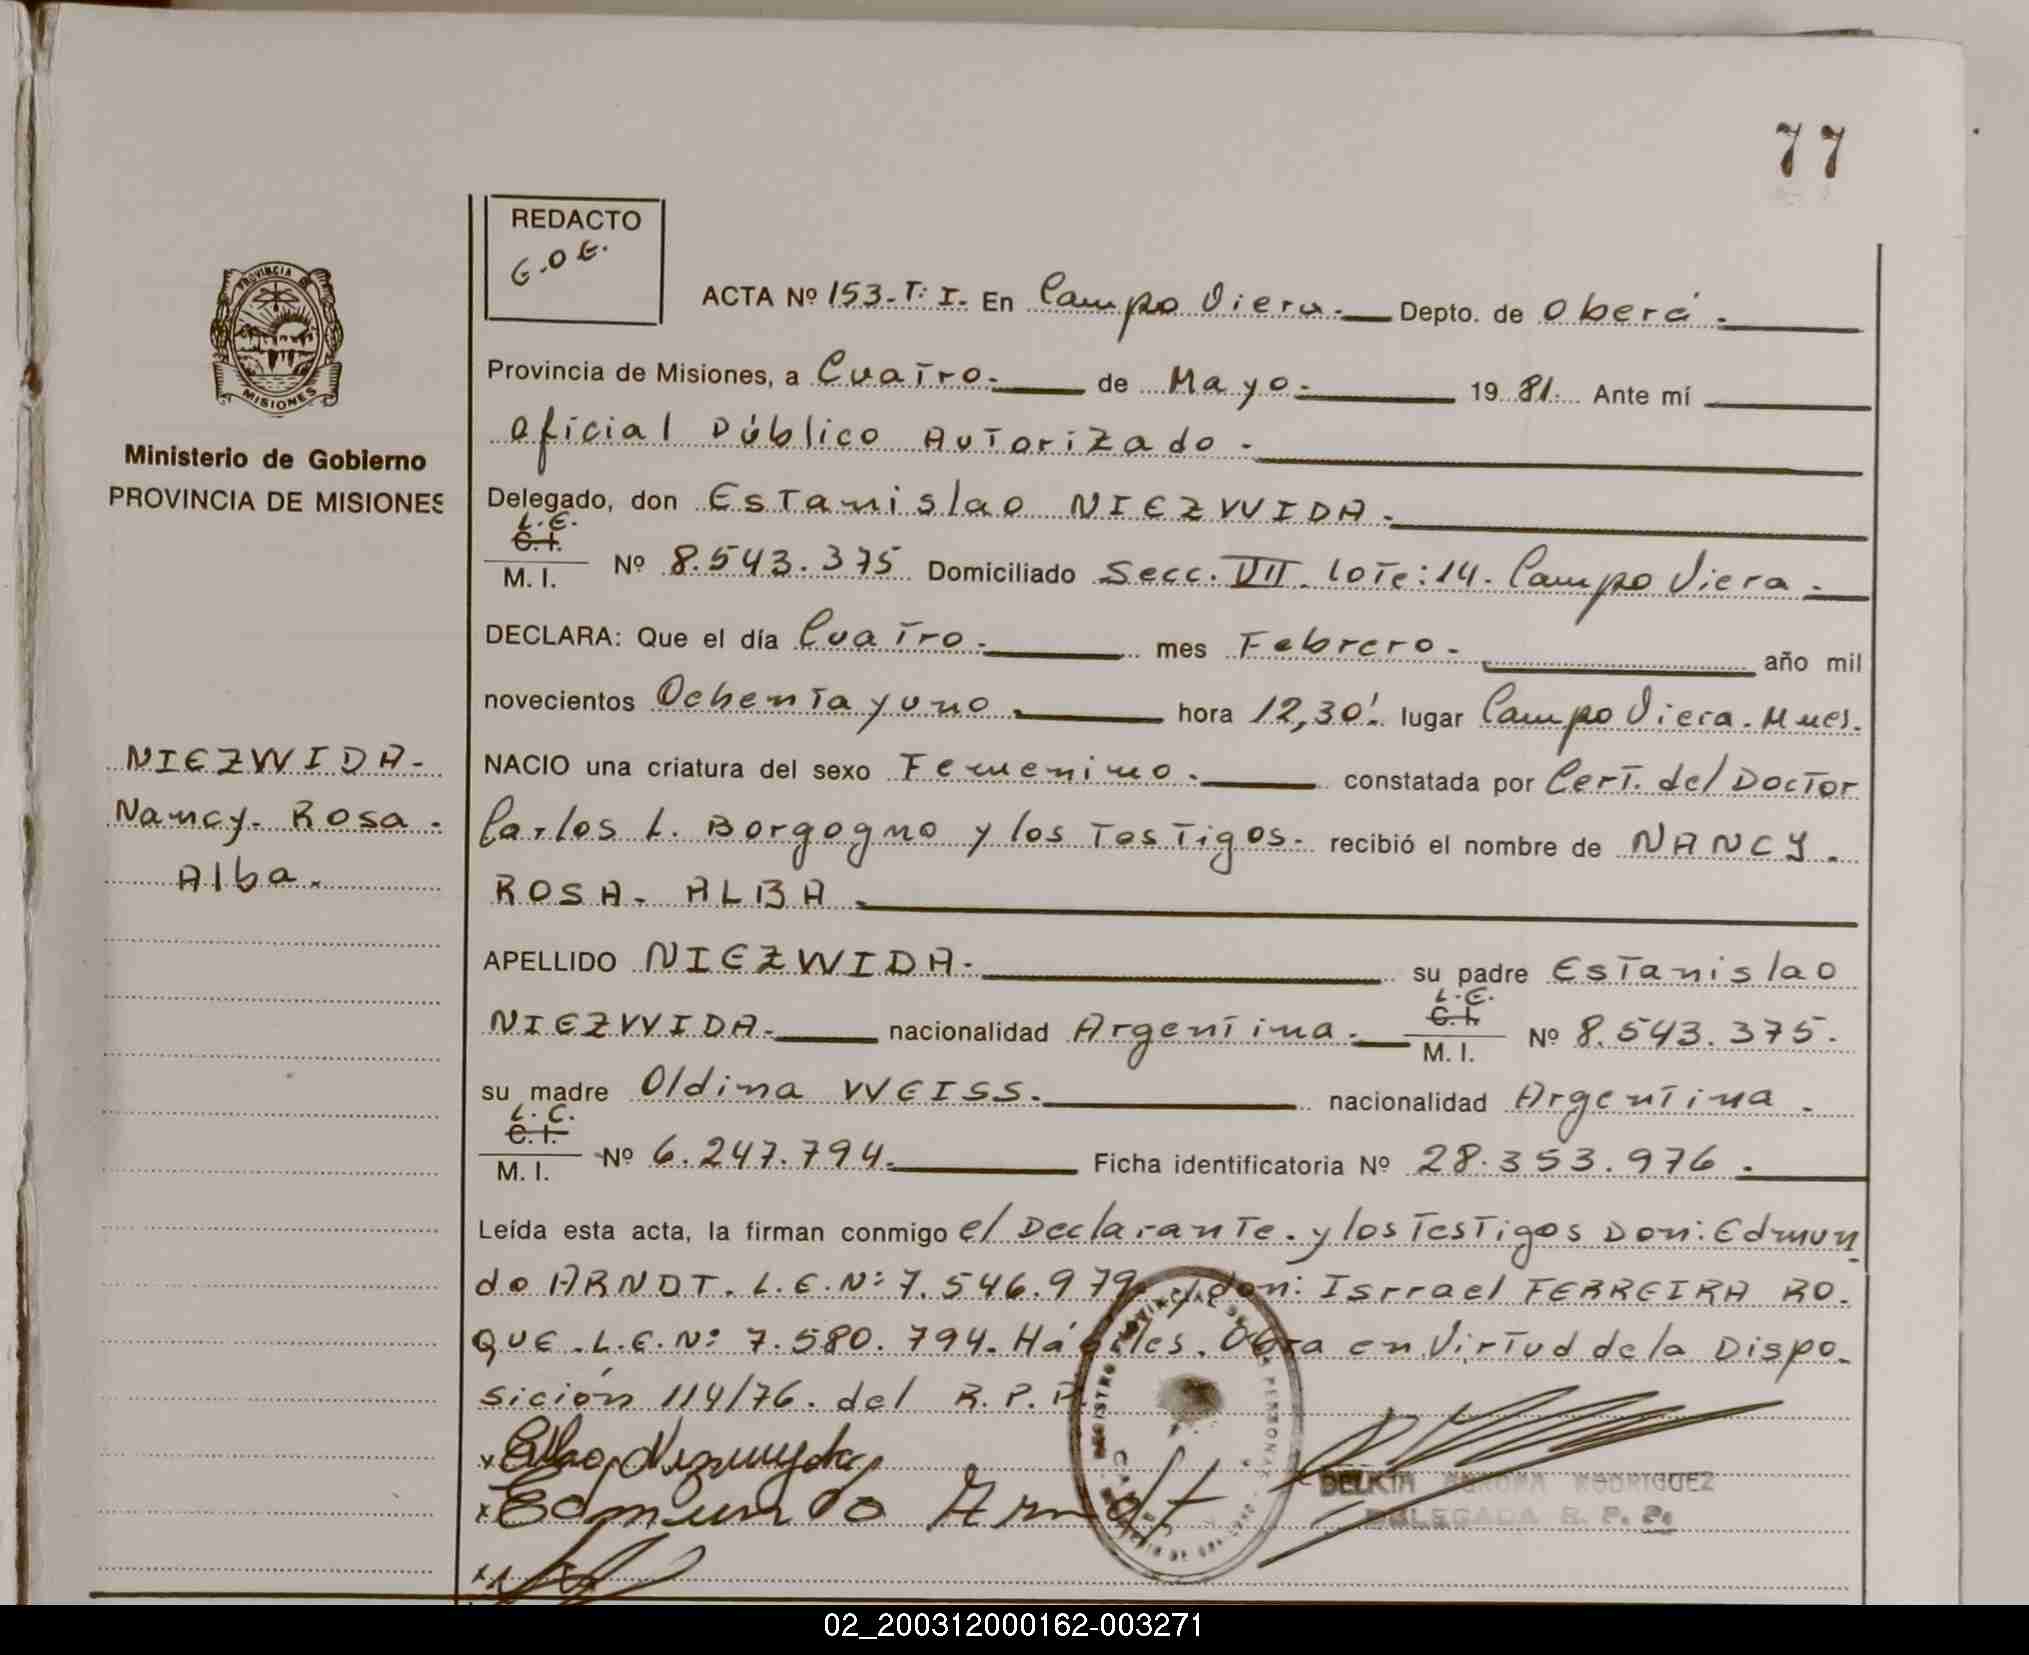 77
REDACTO
G.O.E.
ACTA Nº 153-T: I. En Campo Viera. Depto. de Oberá.
PROVINCIA
MISIONES
Provincia de Misiones, a Cuatro. de Mayo. 1981. Ante mí
Oficial Público Autorizado.
Ministerio de Gobierno
PROVINCIA DE MISIONES
Delegado, don Estanislao NIEZWIDA.
L.E.
C.I.
M. I. Nº 8.543.375 Domiciliado Secc. VII. Lote: 14. Campo Viera.
DECLARA: Que el día Cuatro. mes Febrero. año mil
novecientos Ochenta y uno. hora 12,30'. lugar Campo Viera. Mnes.
NIEZWIDA.
NACIO una criatura del sexo Femenino. constatada por Cert. del Doctor
Nancy. Rosa.
Carlos L. Borgogno y los Testigos. recibió el nombre de NANCY.
Alba.
ROSA. ALBA.
APELLIDO NIEZWIDA. su padre Estanislao
L.E.
C.I.
NIEZWIDA. nacionalidad Argentina. M. I. Nº 8.543.375.
su madre Oldina WEISS. nacionalidad Argentina.
L. C.
C.I.
M. I. Nº 6.247.794. Ficha identificatoria Nº 28.353.976.
Leída esta acta, la firman conmigo el Declarante. y los Testigos Don: Edmun
do ARNDT. L.E.N: 7.546.979. y don: Isrrael FERREIRA RO.
QUE. L.E.N: 7.580.794. Hábiles. Obra en Virtud de la Dispo.
sición 114/76. del R.P.P.
Edmundo Arndt
DELKIA AURORA RODRIGUEZ
DELEGADA R. P. P.
02_200312000162-003271